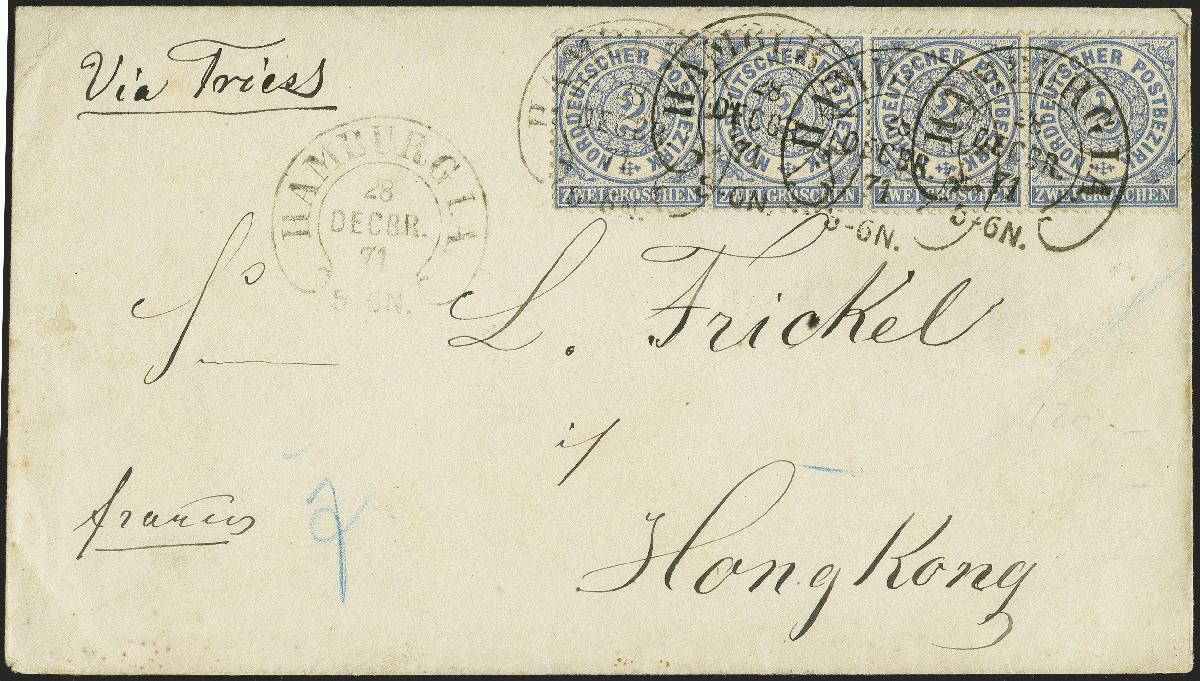 Via Triest
NORDDEUTSCHER POSTBEZIRK
2
ZWEI GROSCHEN
NORDDEUTSCHER POSTBEZIRK
2
ZWEI GROSCHEN
NORDDEUTSCHER POSTBEZIRK
2
ZWEI GROSCHEN
NORDDEUTSCHER POSTBEZIRK
2
ZWEI GROSCHEN
HAMBURG I.A.
28
DECBR.
71
5-6N.
HAMBURG I.A.
28
DECBR.
71
5-6N.
L. Frickel
Hong Kong
franco